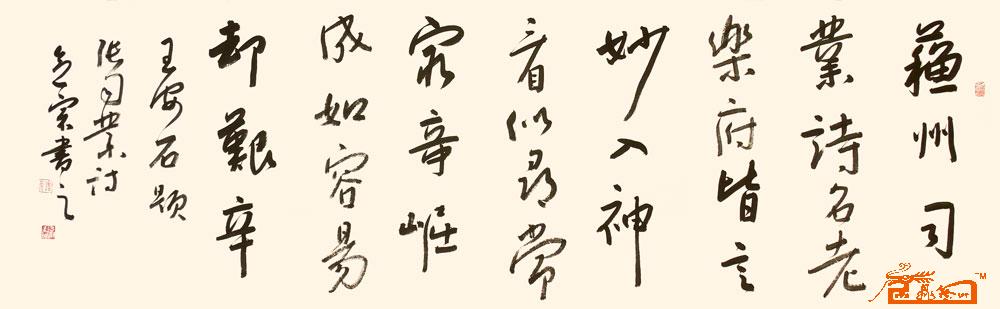 蘓州司
業詩名老
樂府皆言
妙入神
看似尋常
最奇崛
成如容易
却艱辛
王安石題
張司業詩
書之